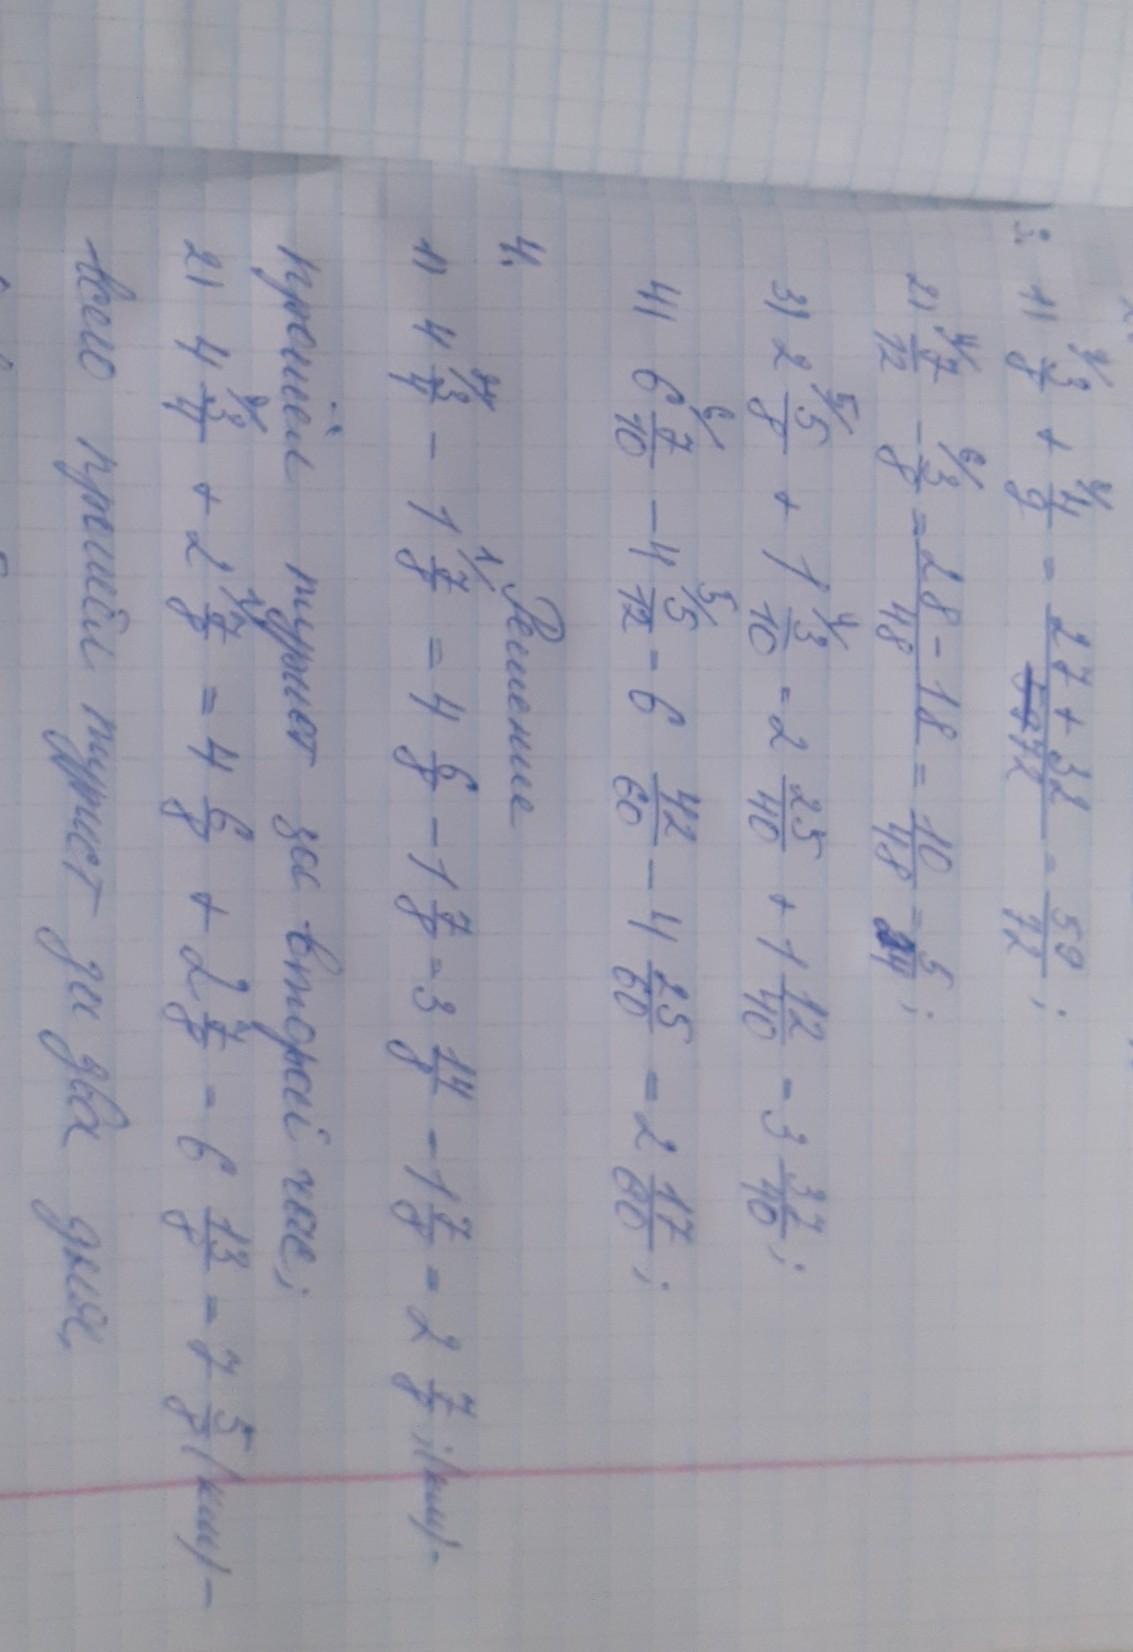 3. 1) 3/8 + 4/9 = 27+32/72 = 59/72;
2) 7/12 - 3/8 = 28-18/48 = 10/48 = 5/24;
3) 2 5/8 + 1 3/10 = 2 25/40 + 1 12/40 = 3 37/40;
4) 6 7/10 - 4 5/12 - 6 42/60 - 4 25/60 = 2 17/60;
4. Решение
1) 4 3/4 - 1 7/8 = 4 6/8 - 1 7/8 = 3 14/8 - 1 7/8 = 2 7/8 (км) -
прошёл турист за второй час;
2) 4 3/4 + 2 7/8 = 4 6/8 + 2 7/8 = 6 13/8 = 7 5/8 (км) -
всего прошёл турист за два дня,